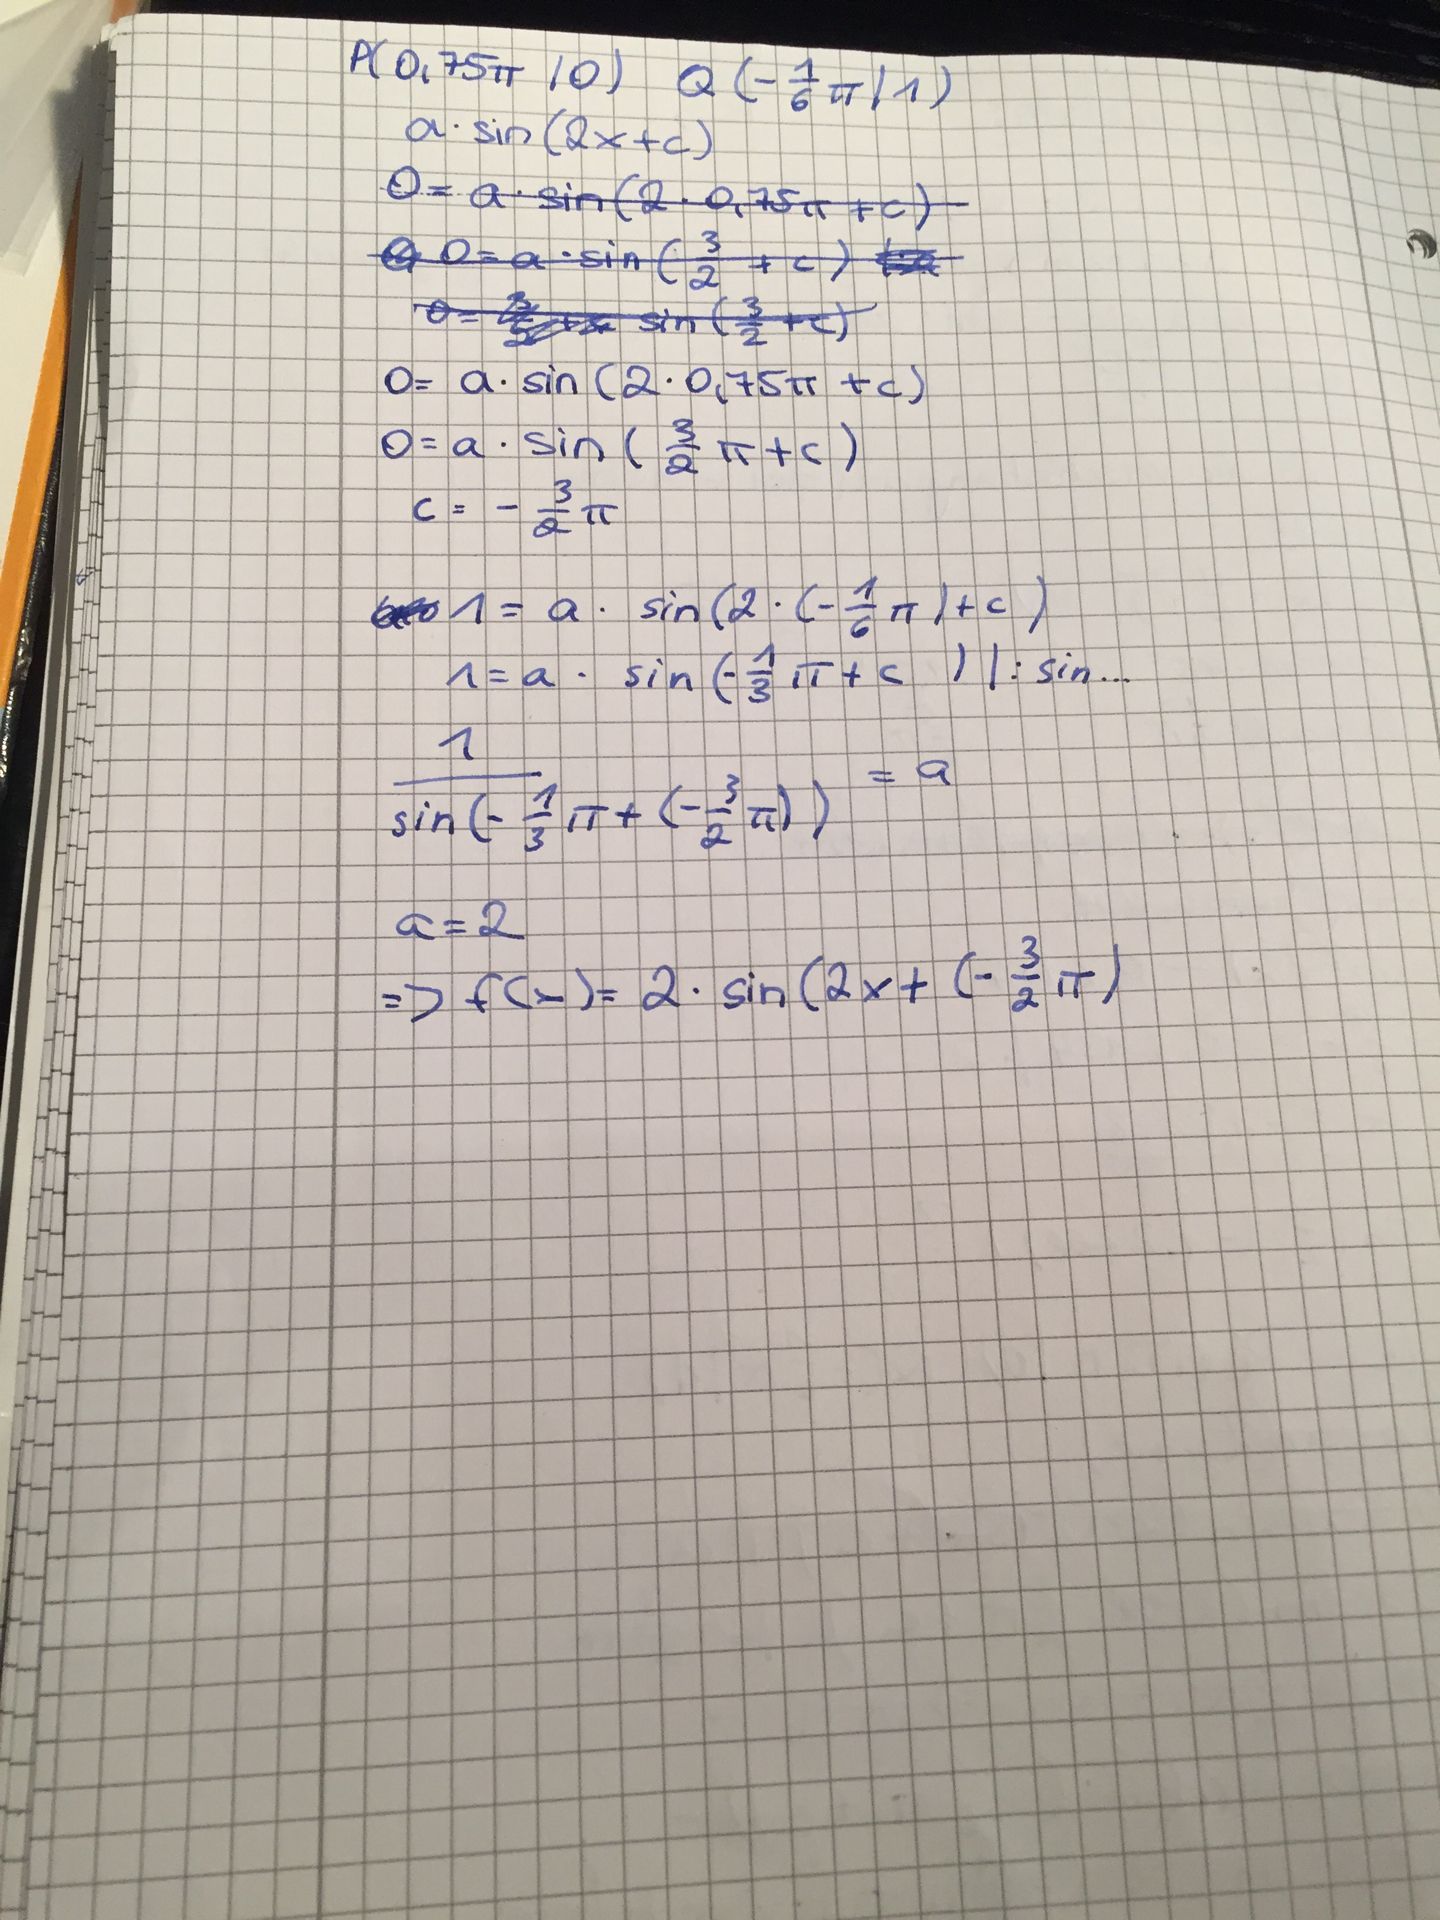 P(0,75π | 0) Q(-1/6 π | 1)
a · sin(2x+c)
0 = a · sin(2 · 0,75π + c)
0 = a · sin(3/2 + c)
0 = sin(3/2 + c)
0 = a · sin(2 · 0,75π + c)
0 = a · sin(3/2 π + c)
c = - 3/2 π
1 = a · sin(2 · (-1/6 π) + c)
1 = a · sin(-1/3 π + c) | : sin...
1/sin(-1/3 π + (-3/2 π)) = a
a = 2
=> f(x) = 2 · sin(2x + (-3/2 π)